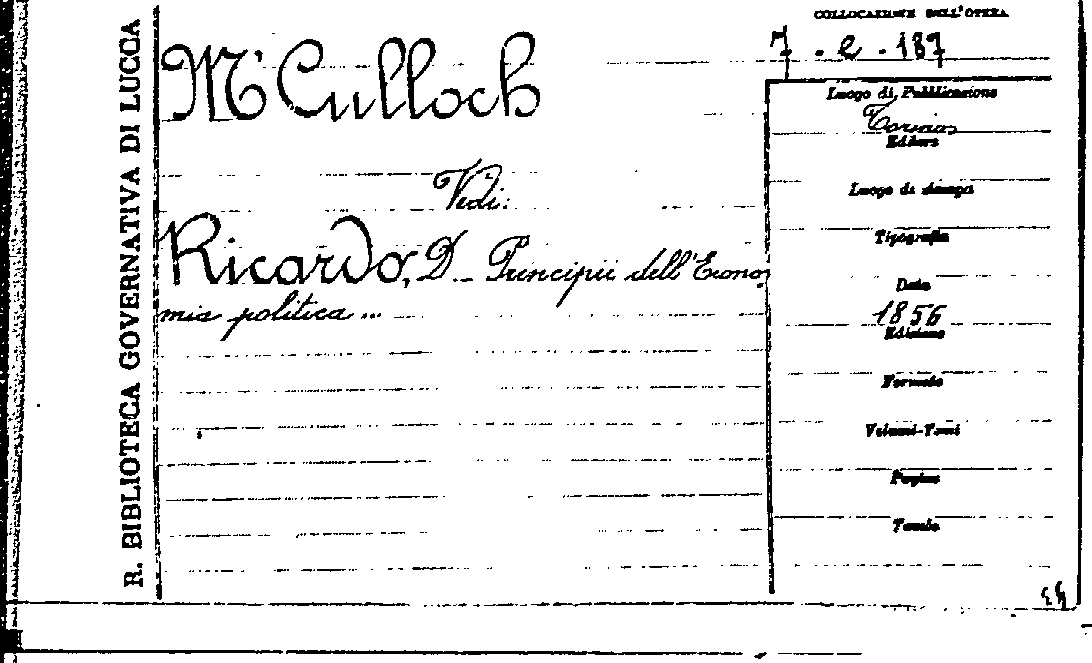 R. BIBLIOTECA GOVERNATIVA DI LUCCA
M'Culloch
Vedi:
Ricardo, D. - Principii dell'Econo-
mia politica ...
COLLOCAZIONE DELL'OPERA
7 - e - 187
Luogo di Pubblicazione
Torino
Editore
Luogo di stampa
Tipografia
Data
1856
Edizione
Formato
Volumi-Tomi
Pagine
Tavole